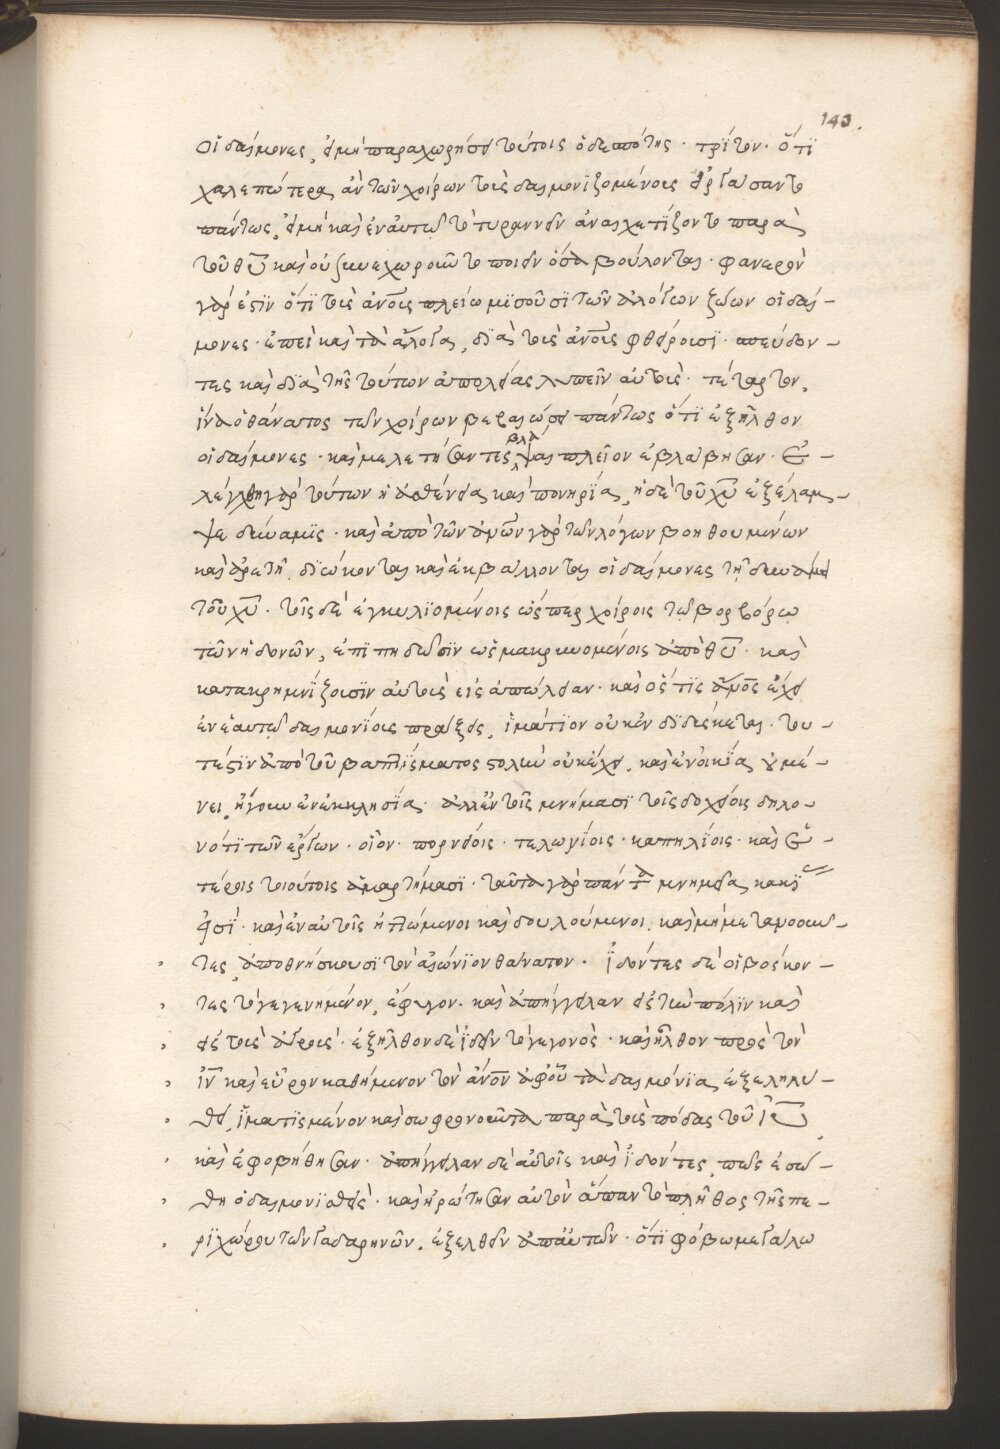 143.
οἱ δαίμονες, εἰ μὴ παραχωρήσει τούτοις ὁ δεσπότης · τρίτον · ὅτϊ
χαλεπώτερα ἂν τῶν χοίρων τοὺς δαιμονϊζομένους εἰργάσαντο
πάντως, εἰ μὴ καὶ ἐν αὐτῶ τὸ τυραννεῖν ἀναχετΐζοντο παρὰ
τοῦ θ̅υ̅ καὶ οὐ συνεχωροῦντο ποιεῖν ὅσα βούλονται · φανερὸν
γάρ ἐστϊν ὅτϊ τοὺς ἀν̅ο̅υς πλείω μϊσοῦσϊ τῶν ἀλόγων ζώων οἱ δαί-
μονες · ἐπεὶ καὶ τὰ ἄλογα, δϊὰ τοὺς ἀν̅ο̅υς φθείρουσϊ · σπεύδον-
τες καὶ δϊὰ τῆς τούτων ἀπωλείας λυπεῖν αὐτοὺς · τέταρτον,
ἵνα ὁ θάνατος τῶν χοίρων βεβαιώσει πάντως ὅτϊ ἐξῆλθον
οἱ δαίμονες · καὶ μελετήσαντες βλάψαι πλεῖον ἐβλάβησαν · ἐ-
λέγχθη γὰρ τούτων ἡ ἀσθένεια καὶ πονηρΐα, ἡ δὲ τοῦ χ̅υ̅ ἐξέλαμ-
ψε δύναμϊς · καὶ ἀπὸ τῶν ἡμῶν γὰρ τῶν λόγων βοηθουμένων
καὶ ἀρετῆ, δϊώκονται καὶ ἐκβάλλονται οἱ δαίμονες τῆ δυνάμει
τοῦ χ̅υ̅ · τοῖς δὲ ἐγκυλϊομένοις ὥσπερ χοίροις τῶ βορβόρω
τῶν ἡδονῶν, ἐπϊπηδῶσϊν ὡς μακρυνομένοις ἀπὸ θ̅υ̅ · καὶ
κατακρημνΐζουσϊν αὐτοὺς εἰς ἀπώλειαν · καὶ ὅςτϊς ἄνο̅ς ἔχει
ἐν ἑαυτῶ δαιμονϊους πράξεις, ἱμάτϊον οὐκ ἐνδϊδύσκεται · του-
τέστϊν ἀπὸ τοῦ βαπτΐσματος στολὴν οὐκ ἔχει, καὶ ἐν οἰκΐα οὐ μέ-
νει, ἤγουν ἐν ἐκκλησΐα · ἀλλ' ἐν τοῖς μνήμασϊ τοῖς δοχείοις δηλο-
νότϊ τῶν ἔργων · οἷον · πορνείοις · τελωνΐοις · καπηλΐοις · καὶ ἑ-
τέροις τοιούτοις ἁμαρτήμασϊ · ταῦτα γὰρ πάντα μνημεῖα κακϊ
εἰσΐ · καὶ ἐν αὐτοῖς ἡττώμενοι καὶ δουλούμενοι, καὶ μὴ μετανοοῦν-
τες, ἀποθνήσκουσϊ τὸν αἰώνϊον θάνατον · Ἰδόντες δὲ οἱ βόσκον-
τες τὸ γεγενημένον, ἔφυγον · καὶ ἀπήγγειλαν εἰς τὴν πόλϊν καὶ
εἰς τοὺς ἀγροὺς · ἐξῆλθον δὲ ἰδεῖν τὸ γεγονὸς · καὶ ἦλθον πρὸς τὸν
ι̅ν̅ καὶ εὗρον καθήμενον τὸν ἀν̅ο̅ν ἀφ' οὗ τὰ δαιμόνϊα ἐξεληλύ-
θει, ἱματϊσμένον καὶ σωφρονοῦντα παρὰ τοὺς πόδας τοῦ ι̅υ̅,
καὶ ἐφοβήθησαν · ἀπήγγειλαν δὲ αὐτοῖς καὶ ἰδόντες, πῶς ἐσώ-
θη ὁ δαιμονϊσθεὶς · καὶ ἠρώτησαν αὐτὸν ἅπαν τὸ πλῆθος τῆς πε-
ρϊχώρου τῶν Γαδαρηνῶν, ἐξελθεῖν ἀπ' αὐτῶν · ὅτϊ φόβω μεγάλω